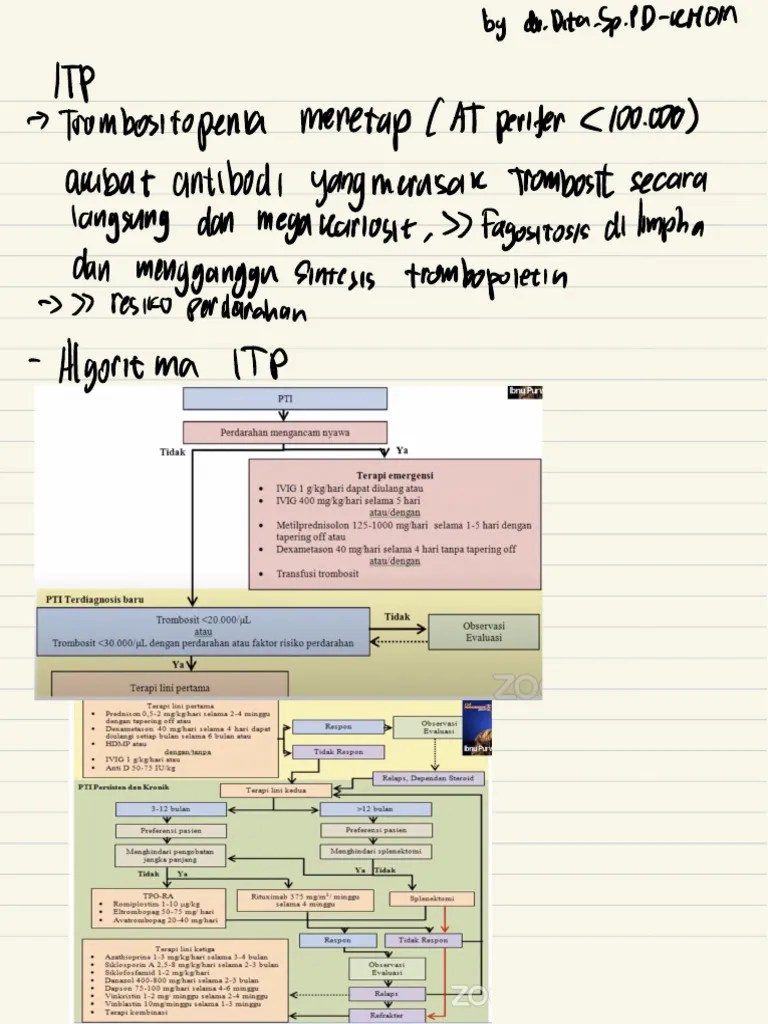 by dr.Dita.Sp.PD-KHOM
ITP
→ Trombositopenia menetap (AT perifer <100.000)
akibat antibodi yang merusak trombosit secara
langsung dan megakariosit, >> Fagositosis di limpha
dan mengganggu sintesis trombopoietin
→ >> resiko perdarahan
- Algoritma ITP
Ibnu Purw
PTI
Perdarahan mengancam nyawa
Tidak
Ya
Terapi emergensi
• IVIG 1 g/kg/hari dapat diulang atau
• IVIG 400 mg/kg/hari selama 5 hari
atau/dengan
• Metilprednisolon 125-1000 mg/hari selama 1-5 hari dengan
tapering off atau
• Dexametason 40 mg/hari selama 4 hari tanpa tapering off
atau/dengan
• Transfusi trombosit
PTI Terdiagnosis baru
Trombosit <20.000/µL
atau
Trombosit <30.000/µL dengan perdarahan atau faktor risiko perdarahan
Tidak
Observasi
Evaluasi
Ya
Terapi lini pertama
Terapi lini pertama
• Prednison 0,5-2 mg/kg/hari selama 2-4 minggu
dengan tapering off atau
• Dexametason 40 mg/hari selama 4 hari dapat
diulangi setiap bulan selama 6 bulan atau
• HDMP atau
dengan/tanpa
• IVIG 1 g/kg/hari atau
• Anti D 50-75 IU/kg
Respon
Observasi
Evaluasi
Tidak Respon
Ibnu Purw
Relaps, Dependen Steroid
PTI Persisten dan Kronik
Terapi lini kedua
3-12 bulan
>12 bulan
Preferensi pasien
Preferensi pasien
Menghindari pengobatan
jangka panjang
Menghindari splenektomi
Tidak
Ya
Ya
Tidak
TPO-RA
• Romiplostim 1-10 µg/kg
• Eltrombopag 50-75 mg/ hari
• Avatrombopag 20-40 mg/hari
Rituximab 375 mg/m²/ minggu
selama 4 minggu
Splenektomi
Respon
Tidak Respon
Terapi lini ketiga
• Azathioprine 1-3 mg/kg/hari selama 3-4 bulan
• Siklosporin A 2,5-8 mg/kg/hari selama 2-3 bulan
• Siklofosfamid 1-2 mg/kg/hari
• Danazol 400-800 mg/hari selama 2-3 bulan
• Dapson 75-100 mg/hari selama 4-6 minggu
• Vinkristin 1-2 mg/ minggu selama 2-4 minggu
• Vinblastin 10mg/minggu selama 1-3 minggu
• Terapi kombinasi
Observasi
Evaluasi
Relaps
Refrakter